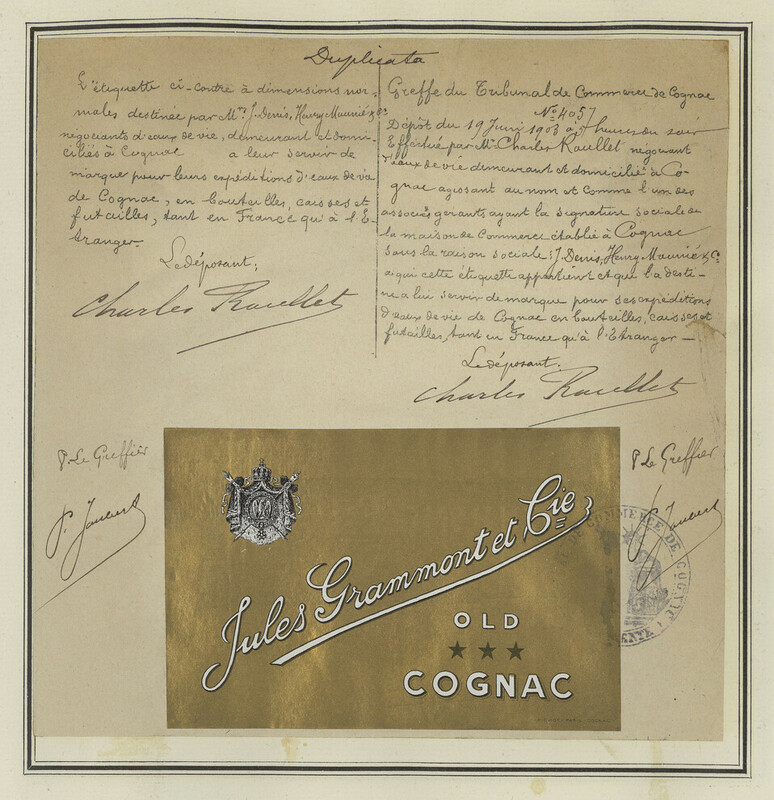 Duplicata
L'étiquette ci-contre à dimensions nor-
males destinée par Mrs J. Denis, Henry Mounié & Co
négociants d'eaux de vie, demeurant et domi-
ciliés à Cognac a leur servir de
marque pour leurs expéditions d'eaux de vie
de Cognac, en bouteilles, caisses et
futailles, tant en France qu'à l'E-
tranger.
Le déposant,
Charles Roullet
Greffe du Tribunal de Commerce de Cognac
No 4057
Dépôt du 19 Juin 1903 à heures du soir
Effectué par Mr Charles Roullet négociant
d'eaux de vie demeurant et domicilié à Co-
gnac agissant au nom et comme l'un des
associés gérants ayant la signature sociale de
la maison de Commerce établie à Cognac
sous la raison sociale: J. Denis, Henry Mounié & Co
a qui cette étiquette appartient et qui la desti-
ne a lui servir de marque pour ses expéditions
d'eaux de vie de Cognac en bouteilles, caisses et
futailles, tant en France qu'à l'Etranger —
Le déposant,
Charles Roullet
P. Le Greffier
P. Le Greffier
Jules Grammont et Cie
OLD
COGNAC
DE COMMERCE DE COGNAC